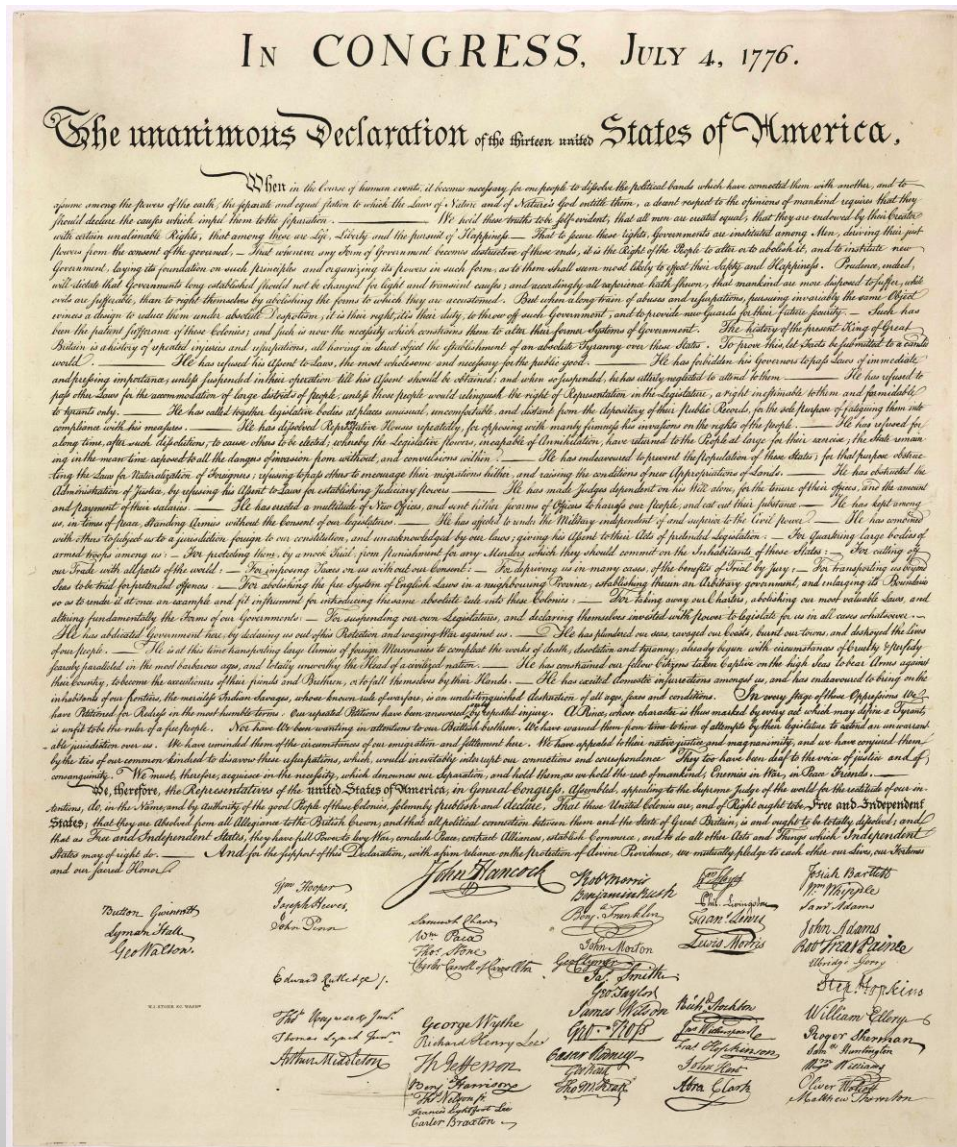 IN CONGRESS, JULY 4, 1776.
The unanimous Declaration of the thirteen united States of America,
When in the Course of human events, it becomes necessary for one people to dissolve the political bands which have connected them with another, and to
assume among the powers of the earth, the separate and equal station to which the Laws of Nature and of Nature's God entitle them, a decent respect to the opinions of mankind requires that they
should declare the causes which impel them to the separation. — We hold these truths to be self-evident, that all men are created equal, that they are endowed by their Creator
with certain unalienable Rights, that among these are Life, Liberty and the pursuit of Happiness.— That to secure these rights, Governments are instituted among Men, deriving their just
powers from the consent of the governed,— That whenever any Form of Government becomes destructive of these ends, it is the Right of the People to alter or to abolish it, and to institute new
Government, laying its foundation on such principles and organizing its powers in such form, as to them shall seem most likely to effect their Safety and Happiness. Prudence, indeed,
will dictate that Governments long established should not be changed for light and transient causes; and accordingly all experience hath shewn, that mankind are more disposed to suffer, while
evils are sufferable, than to right themselves by abolishing the forms to which they are accustomed. But when a long train of abuses and usurpations, pursuing invariably the same Object
evinces a design to reduce them under absolute Despotism, it is their right, it is their duty, to throw off such Government, and to provide new Guards for their future security.— Such has
been the patient sufferance of these Colonies; and such is now the necessity which constrains them to alter their former Systems of Government. The history of the present King of Great
Britain is a history of repeated injuries and usurpations, all having in direct object the establishment of an absolute Tyranny over these States. To prove this, let Facts be submitted to a candid
world. — He has refused his Assent to Laws, the most wholesome and necessary for the public good. — He has forbidden his Governors to pass Laws of immediate
and pressing importance, unless suspended in their operation till his Assent should be obtained; and when so suspended, he has utterly neglected to attend to them. — He has refused to
pass other Laws for the accommodation of large districts of people, unless those people would relinquish the right of Representation in the Legislature, a right inestimable to them and formidable
to tyrants only. — He has called together legislative bodies at places unusual, uncomfortable, and distant from the depository of their public Records, for the sole purpose of fatiguing them into
compliance with his measures. — He has dissolved Representative Houses repeatedly, for opposing with manly firmness his invasions on the rights of the people. — He has refused for
a long time, after such dissolutions, to cause others to be elected; whereby the Legislative powers, incapable of Annihilation, have returned to the People at large for their exercise; the State remain-
ing in the mean time exposed to all the dangers of invasion from without, and convulsions within. — He has endeavoured to prevent the population of these States; for that purpose obstruc-
ting the Laws for Naturalization of Foreigners; refusing to pass others to encourage their migrations hither, and raising the conditions of new Appropriations of Lands. — He has obstructed the
Administration of Justice, by refusing his Assent to Laws for establishing Judiciary powers. — He has made Judges dependent on his Will alone, for the tenure of their offices, and the amount
and payment of their salaries. — He has erected a multitude of New Offices, and sent hither swarms of Officers to harrass our people, and eat out their substance. — He has kept among
us, in times of peace, Standing Armies without the Consent of our legislatures. — He has affected to render the Military independent of and superior to the Civil power. — He has combined
with others to subject us to a jurisdiction foreign to our constitution, and unacknowledged by our laws; giving his Assent to their Acts of pretended Legislation: — For Quartering large bodies of
armed troops among us: — For protecting them, by a mock Trial, from punishment for any Murders which they should commit on the Inhabitants of these States: — For cutting off
our Trade with all parts of the world: — For imposing Taxes on us without our Consent: — For depriving us in many cases, of the benefits of Trial by Jury: — For transporting us beyond
Seas to be tried for pretended offences — For abolishing the free System of English Laws in a neighbouring Province, establishing therein an Arbitrary government, and enlarging its Boundaries
so as to render it at once an example and fit instrument for introducing the same absolute rule into these Colonies: — For taking away our Charters, abolishing our most valuable Laws, and
altering fundamentally the Forms of our Governments: — For suspending our own Legislatures, and declaring themselves invested with power to legislate for us in all cases whatsoever. —
He has abdicated Government here, by declaring us out of his Protection and waging War against us. — He has plundered our seas, ravaged our Coasts, burnt our towns, and destroyed the lives
of our people. — He is at this time transporting large Armies of foreign Mercenaries to compleat the works of death, desolation and tyranny, already begun with circumstances of Cruelty & perfidy
scarcely paralleled in the most barbarous ages, and totally unworthy the Head of a civilized nation. — He has constrained our fellow Citizens taken Captive on the high Seas to bear Arms against
their Country, to become the executioners of their friends and Brethren, or to fall themselves by their Hands. — He has excited domestic insurrections amongst us, and has endeavoured to bring on the
inhabitants of our frontiers, the merciless Indian Savages, whose known rule of warfare, is an undistinguished destruction of all ages, sexes and conditions. In every stage of these Oppressions We
have Petitioned for Redress in the most humble terms: Our repeated Petitions have been answered only by repeated injury. A Prince, whose character is thus marked by every act which may define a Tyrant,
is unfit to be the ruler of a free people. Nor have We been wanting in attentions to our Brittish brethren. We have warned them from time to time of attempts by their legislature to extend an unwarrant-
able jurisdiction over us. We have reminded them of the circumstances of our emigration and settlement here. We have appealed to their native justice and magnanimity, and we have conjured them
by the ties of our common kindred to disavow these usurpations, which, would inevitably interrupt our connections and correspondence They too have been deaf to the voice of justice and of
consanguinity. We must, therefore, acquiesce in the necessity, which denounces our Separation, and hold them, as we hold the rest of mankind, Enemies in War, in Peace Friends. —
We, therefore, the Representatives of the united States of America, in General Congress, Assembled, appealing to the Supreme Judge of the world for the rectitude of our in-
tentions, do, in the Name, and by Authority of the good People of these Colonies, solemnly publish and declare, That these United Colonies are, and of Right ought to be Free and Independent
States; that they are Absolved from all Allegiance to the British Crown, and that all political connection between them and the State of Great Britain, is and ought to be totally dissolved; and
that as Free and Independent States, they have full Power to levy War, conclude Peace, contract Alliances, establish Commerce, and to do all other Acts and Things which Independent
States may of right do. — And for the support of this Declaration, with a firm reliance on the protection of divine Providence, we mutually pledge to each other our Lives, our Fortunes
and our sacred Honor.
Button Gwinnett
Lyman Hall
Geo Walton.
W. J. STONE SC. WASHN
Wm Hooper
Joseph Hewes,
John Penn
Edward Rutledge /.
Thos Heyward Junr.
Thomas Lynch Junr.
Arthur Middleton
John Hancock
Samuel Chase
Wm Paca
Thos Stone
Charles Carroll of Carrollton
George Wythe
Richard Henry Lee
Th Jefferson
Benj Harrison
Thos Nelson jr.
Francis Lightfoot Lee
Carter Braxton
Robt Morris
Benjamin Rush
Benja Franklin
John Morton
Geo Clymer
Jas. Smith
Geo. Taylor
James Wilson
Geo. Ross
Caesar Rodney
Geo Read
Tho M:Kean
Wm Floyd
Phil. Livingston
Frans Lewis
Lewis Morris
Richd Stockton
Jno Witherspoon
Fras Hopkinson
John Hart
Abra Clark
Josiah Bartlett
Wm Whipple
Saml Adams
John Adams
Robt Treat Paine
Elbridge Gerry
Step Hopkins
William Ellery
Roger Sherman
Saml Huntington
Wm Williams
Oliver Wolcott
Matthew Thornton